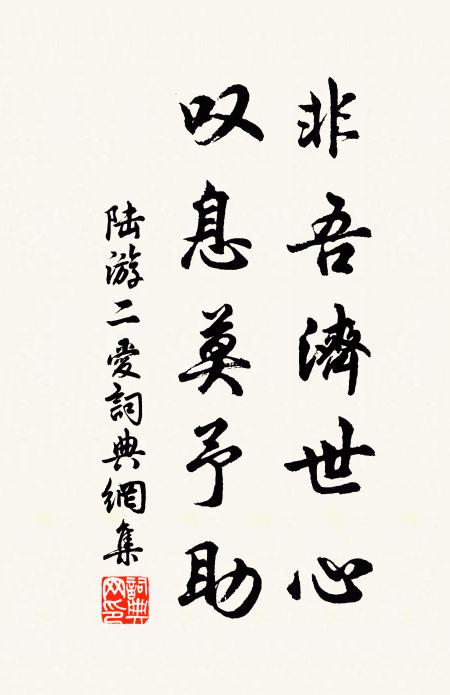 非吾濟世心
叹息莫予助
陆游二爱詞典網集
詞典网印